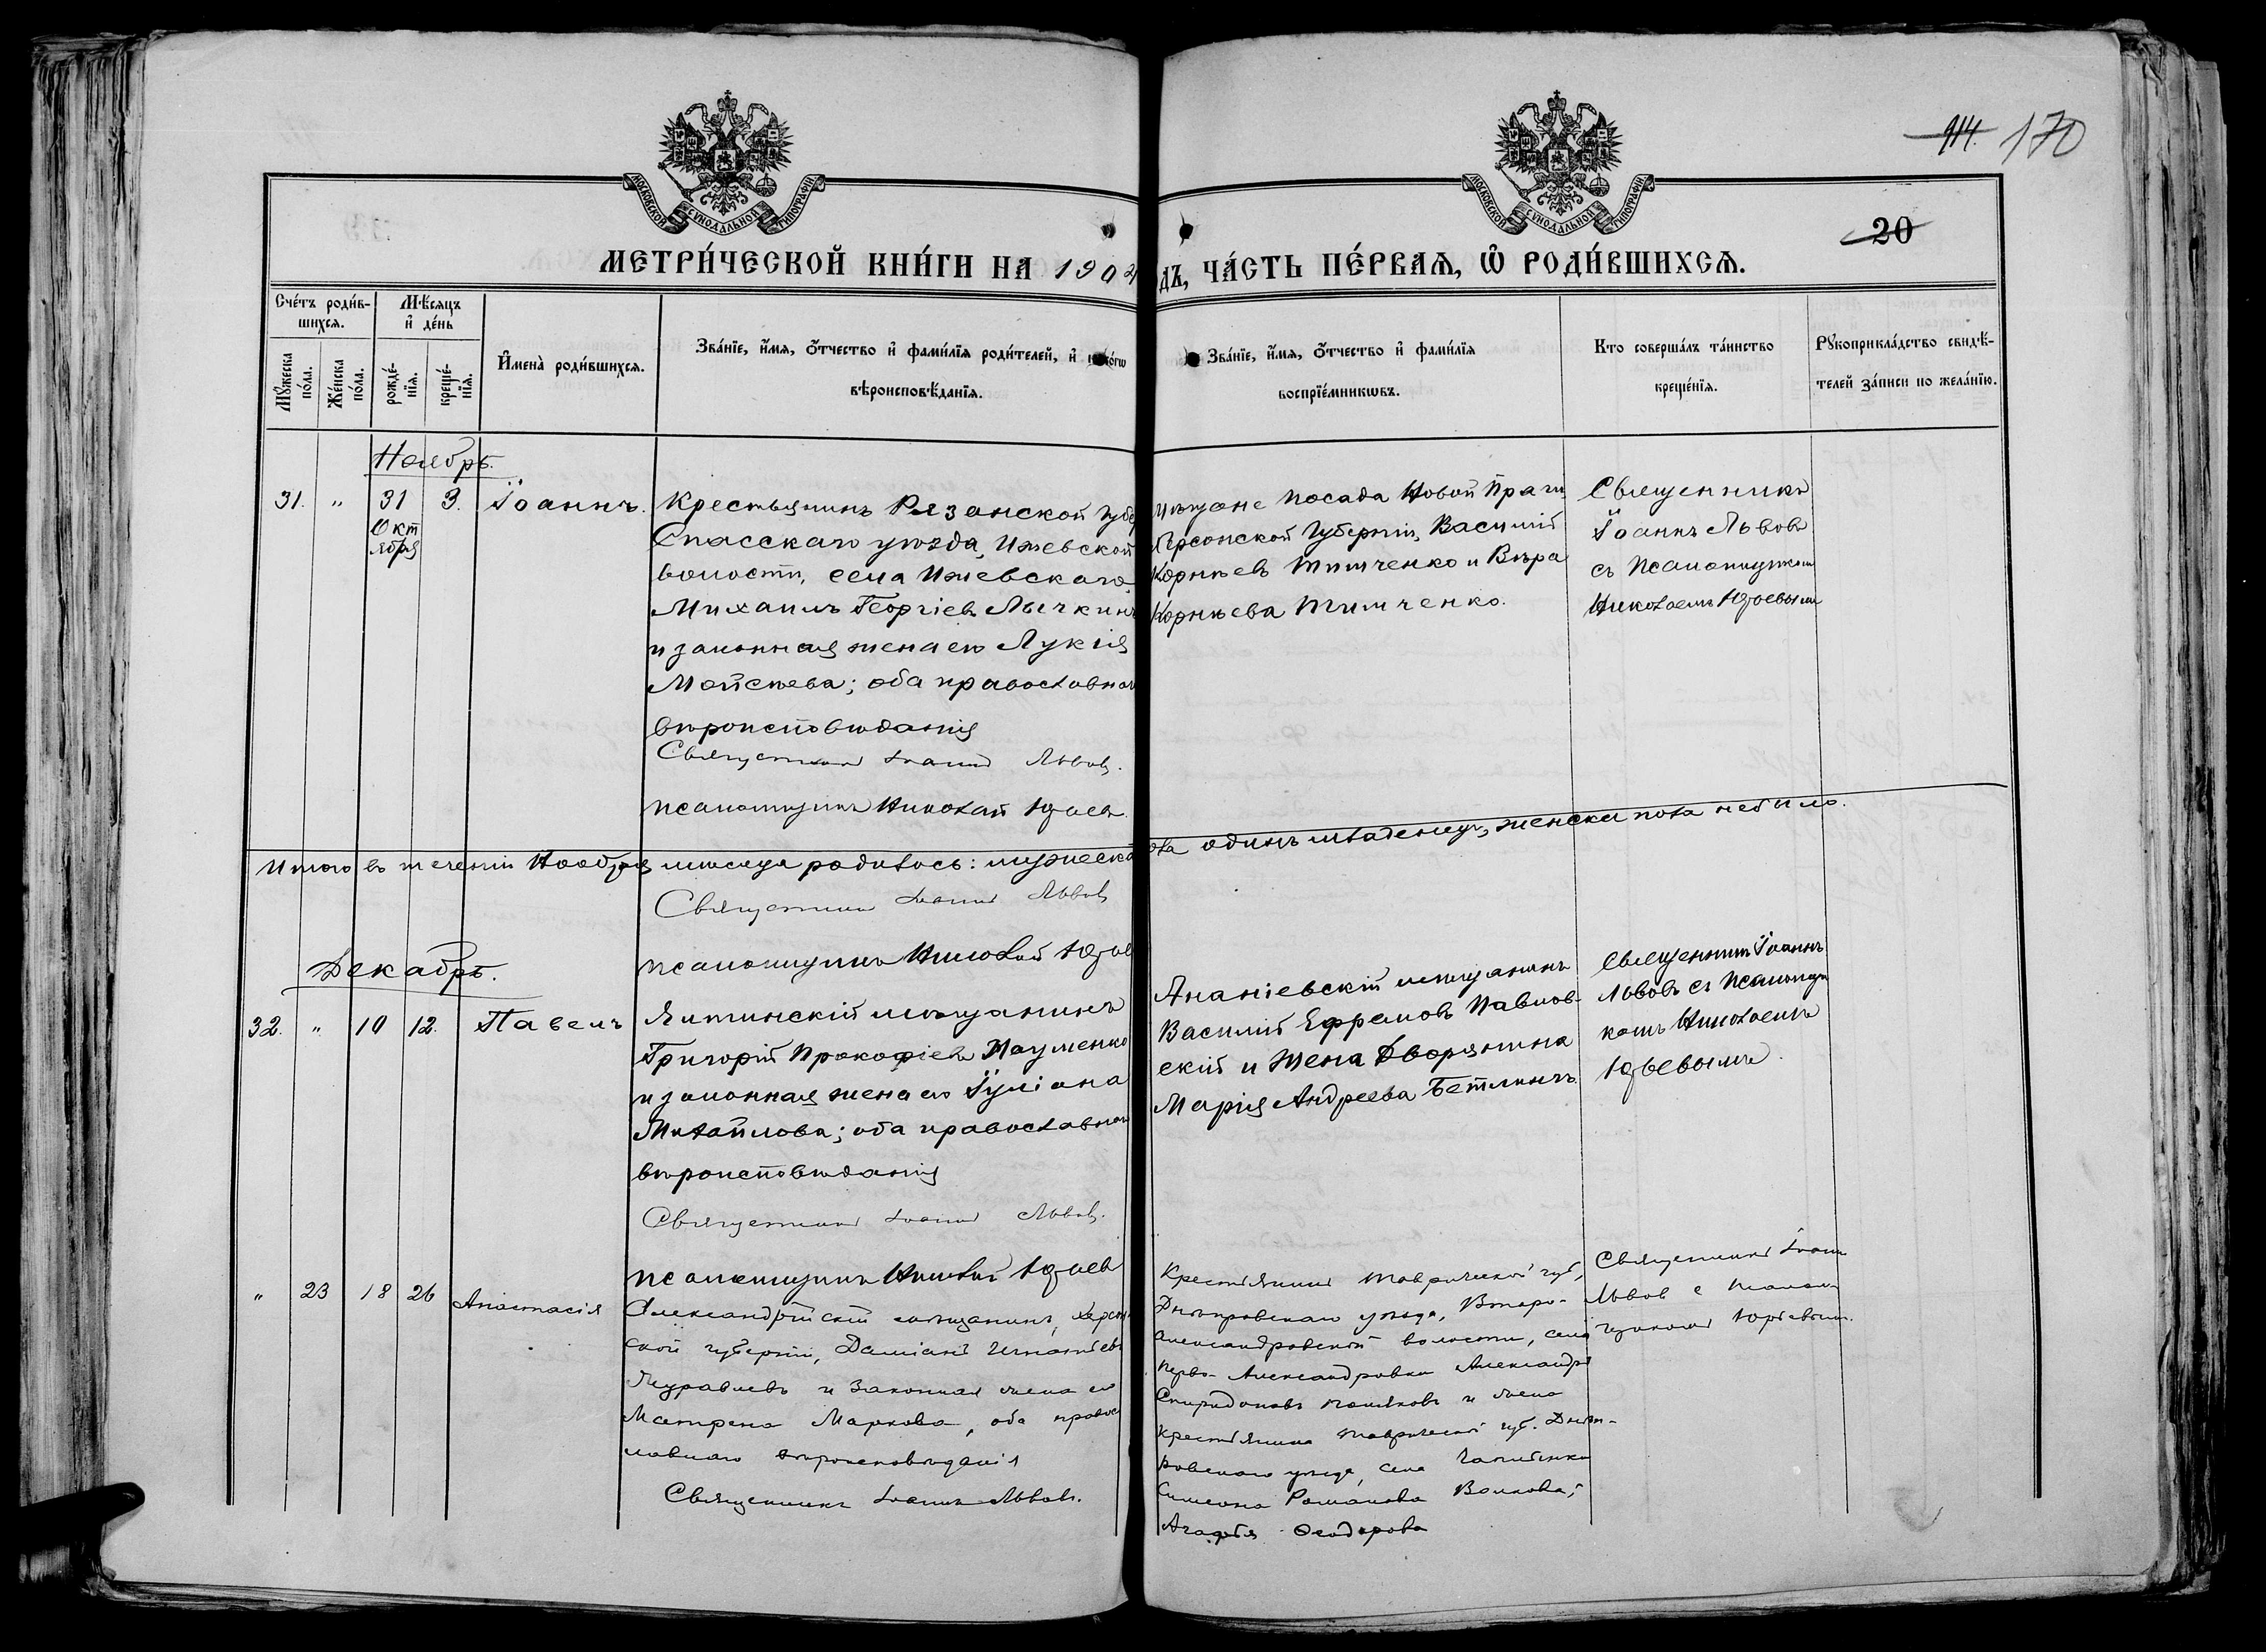 114. 170
МОСКОВСКОЙ СѴНОДАЛЬНОЙ ТИПОГРАФІИ
МОСКОВСКОЙ СѴНОДАЛЬНОЙ ТИПОГРАФІИ
20
МЕТРИ́ЧЕСКОЙ КНИ́ГИ НА 1904
ДЪ, ЧА́СТЬ ПЕ́РВАѦ, Ѽ РОДИ́ВШИХСѦ.
Сче́тъ роди́в-
шихсѧ.
Мѣ́сѧцъ
и҆ де́нь
Мꙋ́жеска
по́ла.
Же́нска
по́ла.
рожде́-
нїѧ.
креще́-
нїѧ.
И҆мена̀ роди́вшихсѧ.
Зва́нїе, и҆́мѧ, ѻ҆́тчество и҆ фами́лїѧ роди́телей, и҆ како́гѡ
вѣроисповѣ́данїѧ.
Зва́нїе, и҆́мѧ, ѻ҆́тчество и҆ фами́лїѧ
воспрїе́мникѡвъ.
Кто соверша́лъ та́инство
креще́нїѧ.
Рꙋкоприкла́дство свидѣ́-
телей за́писи по жела́нїю.
Ноябрь.
31. " 31 3. Іоаннъ.
Окт
ября
Крестьянинъ Рязанской Губер
Спасскаго уѣзда, Ижевской
волости, села Ижевскаго
Михаилъ Георгіевъ Лычкинъ
и законная жена его Лукія
Моисѣева; оба православнаго
вѣроисповѣданія
Священникъ Іоаннъ Львовъ.
псаломщикъ Николай Юрьевъ.
Мѣщане посада Новой Праги
Херсонской Губерніи, Василій
Корнѣевъ Тимченко и Вѣра
Корнѣева Тимченко.
Священникъ
Іоаннъ Львовъ
съ Псаломщикомъ
Николаемъ Юрьевымъ
Итого въ теченіи Ноября мѣсяца родилось: мужеска
пола одинъ младенецъ, женска пола небыло.
Священникъ Іоаннъ Львовъ
псаломщикъ Николай Юрьев
Декабрь.
32. " 10 12. Павелъ
Ялтинскій мѣщанинъ
Григорій Прокофіевъ Науменко
и законная жена его Іуліана
Михайлова; оба православнаго
вѣроисповѣданія
Священникъ Іоаннъ Львовъ.
псаломщикъ Николай Юрьев
Ананіевскій мѣщанинъ
Василій Ефремовъ Павлов-
скій и Жена Дворянина
Марія Андреева Бетлингъ
Священникъ Іоаннъ
Львовъ съ Псаломщи
комъ Николаемъ
Юрьевымъ.
" 23 18 26 Анастасія
Александрійскій мѣщанинъ, Херсон
ской губерніи, Даміанъ Игнатіевъ
Муравлевъ и законная жена его
Матрена Маркова, оба правос
лавнаго вѣроисповѣданія
Священникъ Іоаннъ Львовъ.
Крестьянинъ Таврической губ,
Днѣпровскаго уѣзда, Второ-
александровской волости, села
Перво-Александровки Александръ
Спиридоновъ и жена
крестьянина Таврической губ. Днѣп-
ровскаго уѣзда, села Чаплинки
Симеона Романова Волкова,
Агафія Ѳеодорова
Священникъ Іоаннъ
Львовъ с Псалом
щикомъ Юрьевымъ.